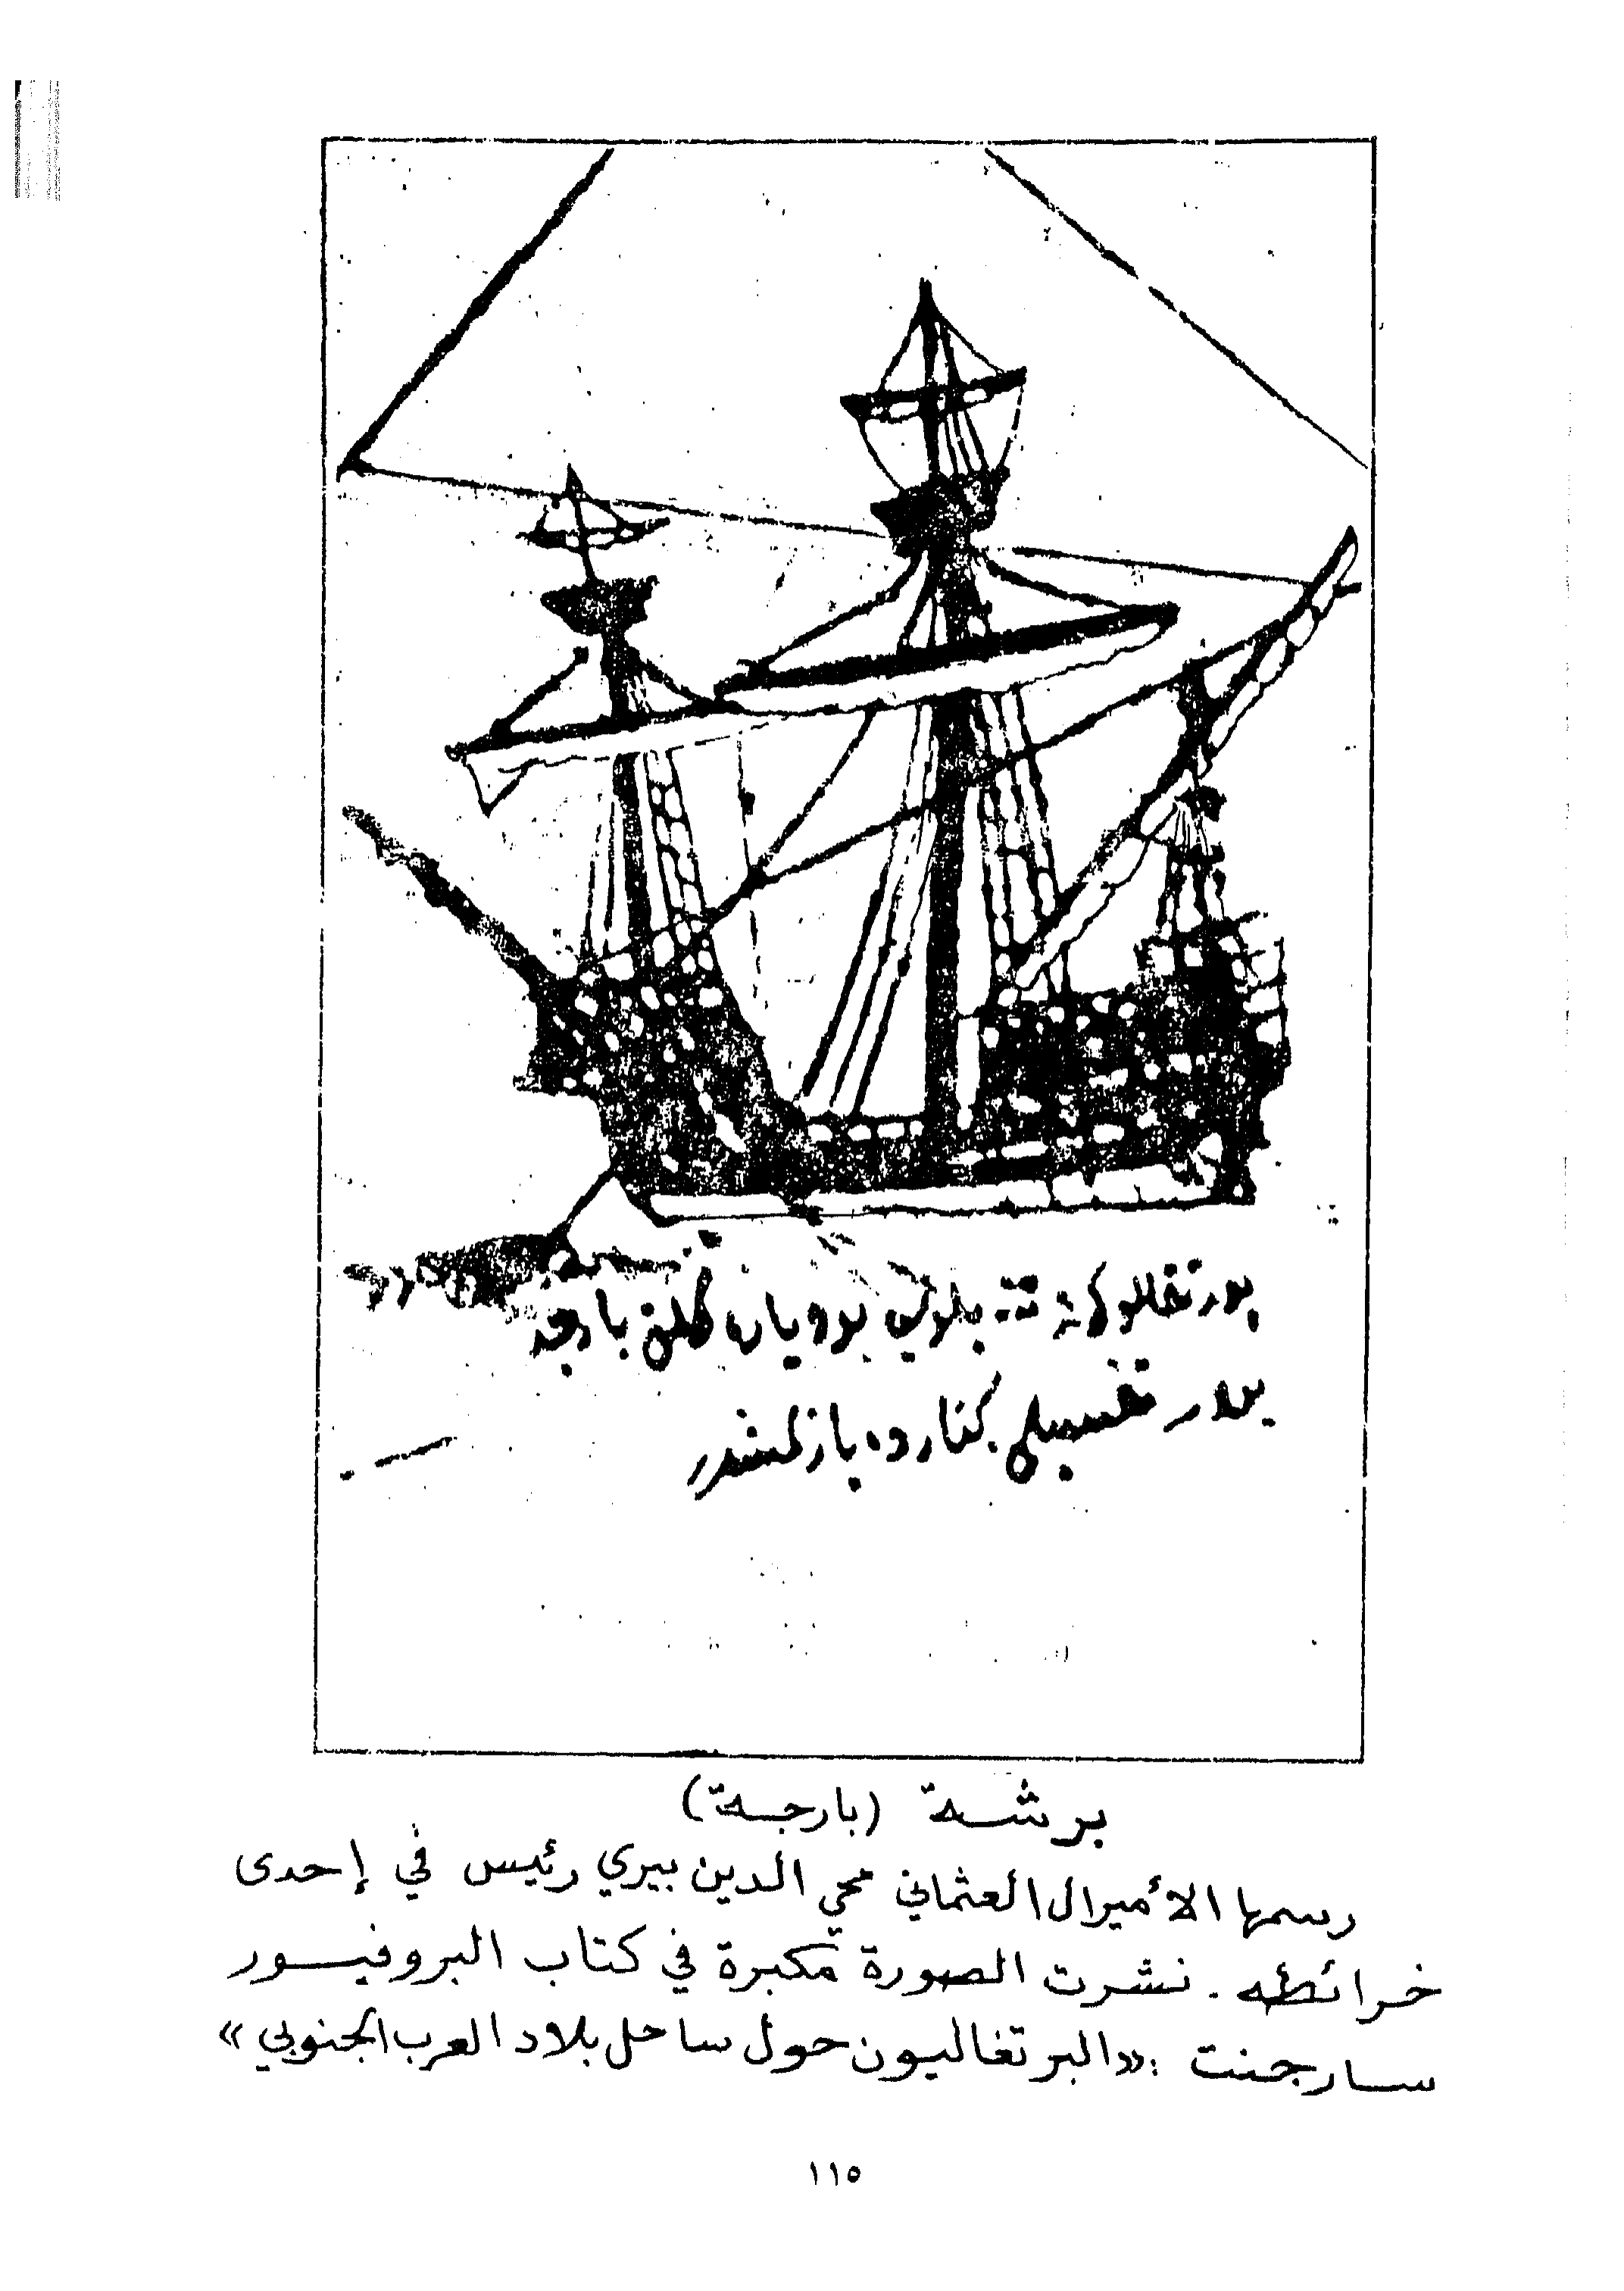 كنارده يازلمشدر
برشة (بارجة)
رسمها الأميرال العثماني محي الدين بيري رئيس في إحدى
خرائطه. نشرت الصورة مكبرة في كتاب البروفيسور
سارجنت :«البرتغاليون حول ساحل بلاد العرب الجنوبي»
١١٥